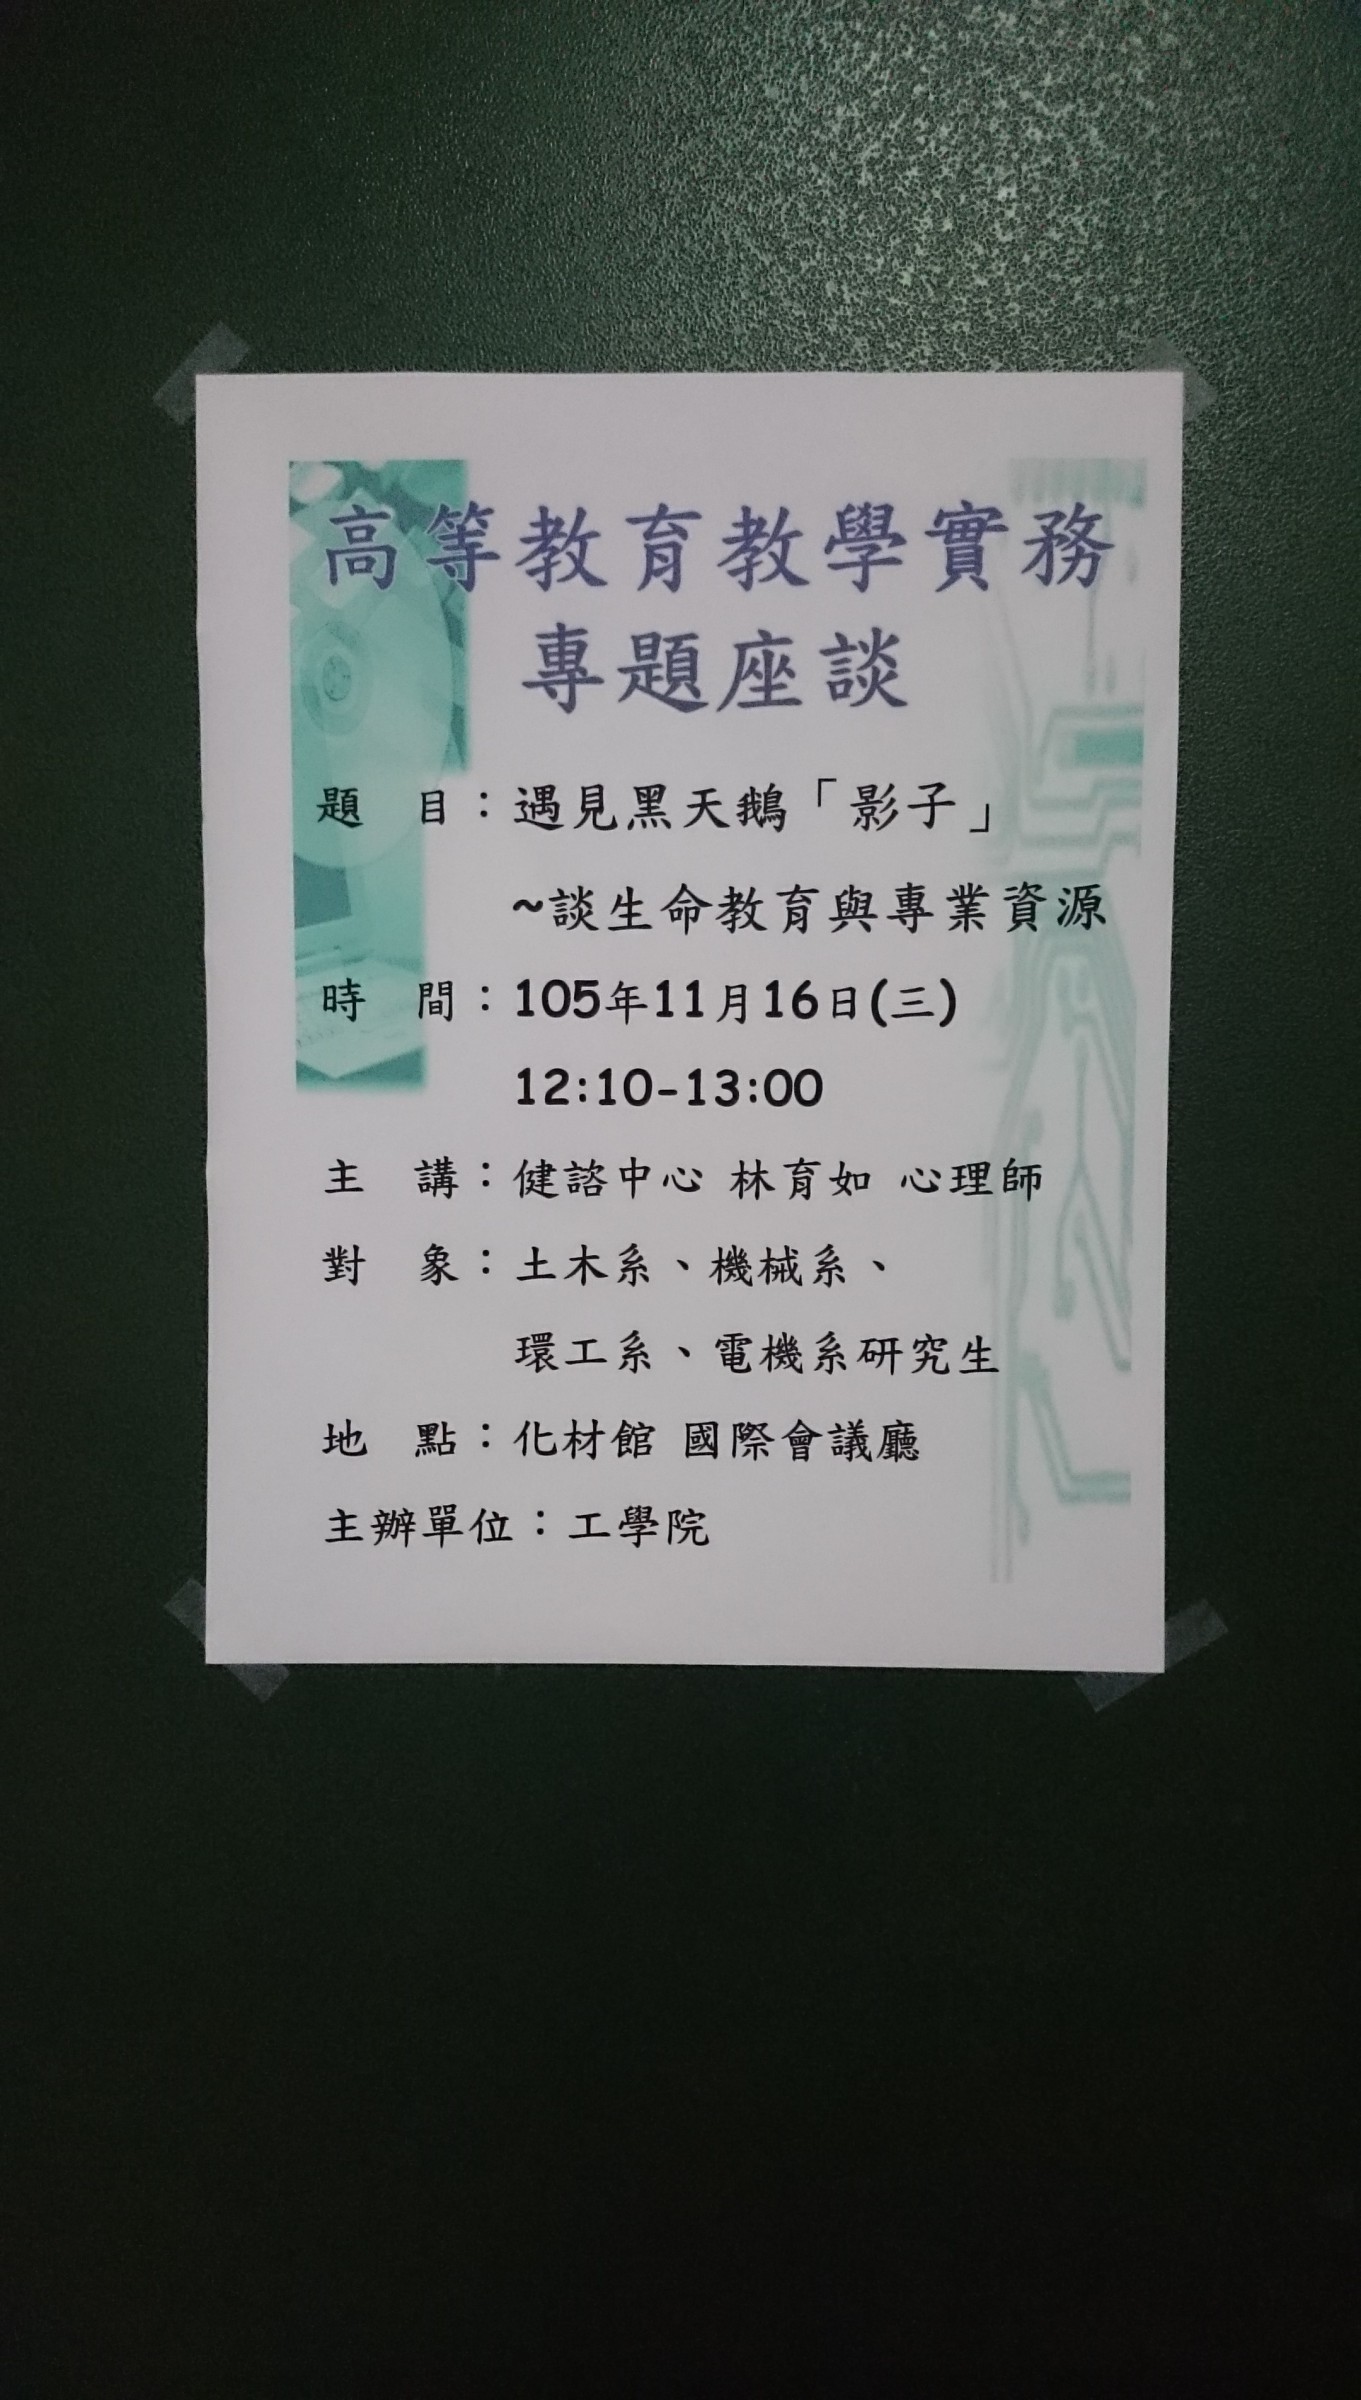 高等教育教學實務
專題座談
題　目：遇見黑天鵝「影子」
~談生命教育與專業資源
時　間：105年11月16日(三)
12:10-13:00
主　講：健諮中心 林育如 心理師
對　象：土木系、機械系、
環工系、電機系研究生
地　點：化材館 國際會議廳
主辦單位：工學院